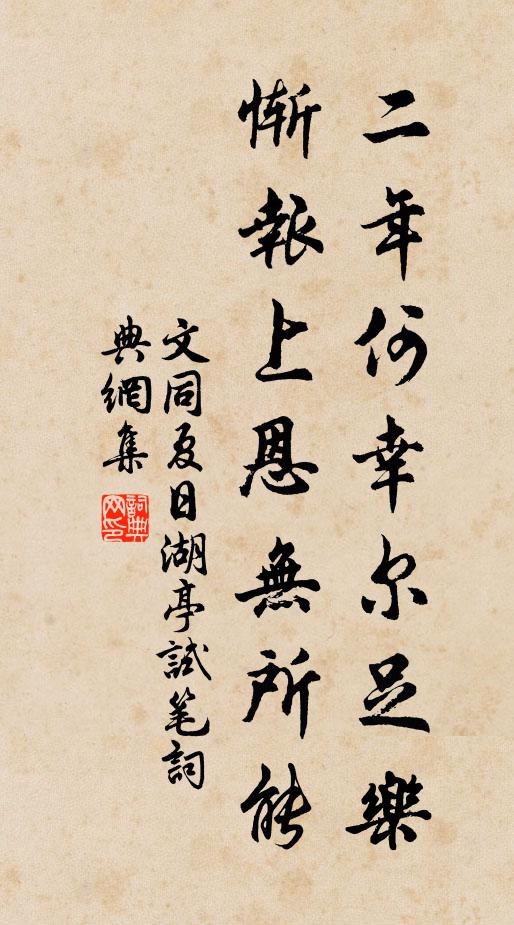 二年何幸尔足樂
慚報上恩無所能
文同夏日湖亭試笔詞
典網集
詞典網印